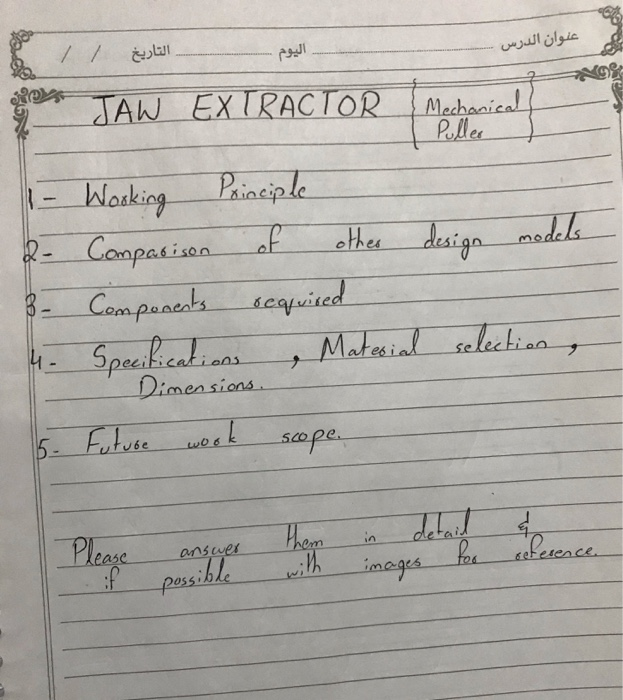 عنوان الدرس اليوم التاريخ / /
JAW EXTRACTOR { Mechanical
Puller }
1- Working Principle
2- Comparison of other design models
3- Components required
4- Specifications, Material selection,
Dimensions.
5- Future work scope.
Please answer them in detail &
if possible with images for reference.